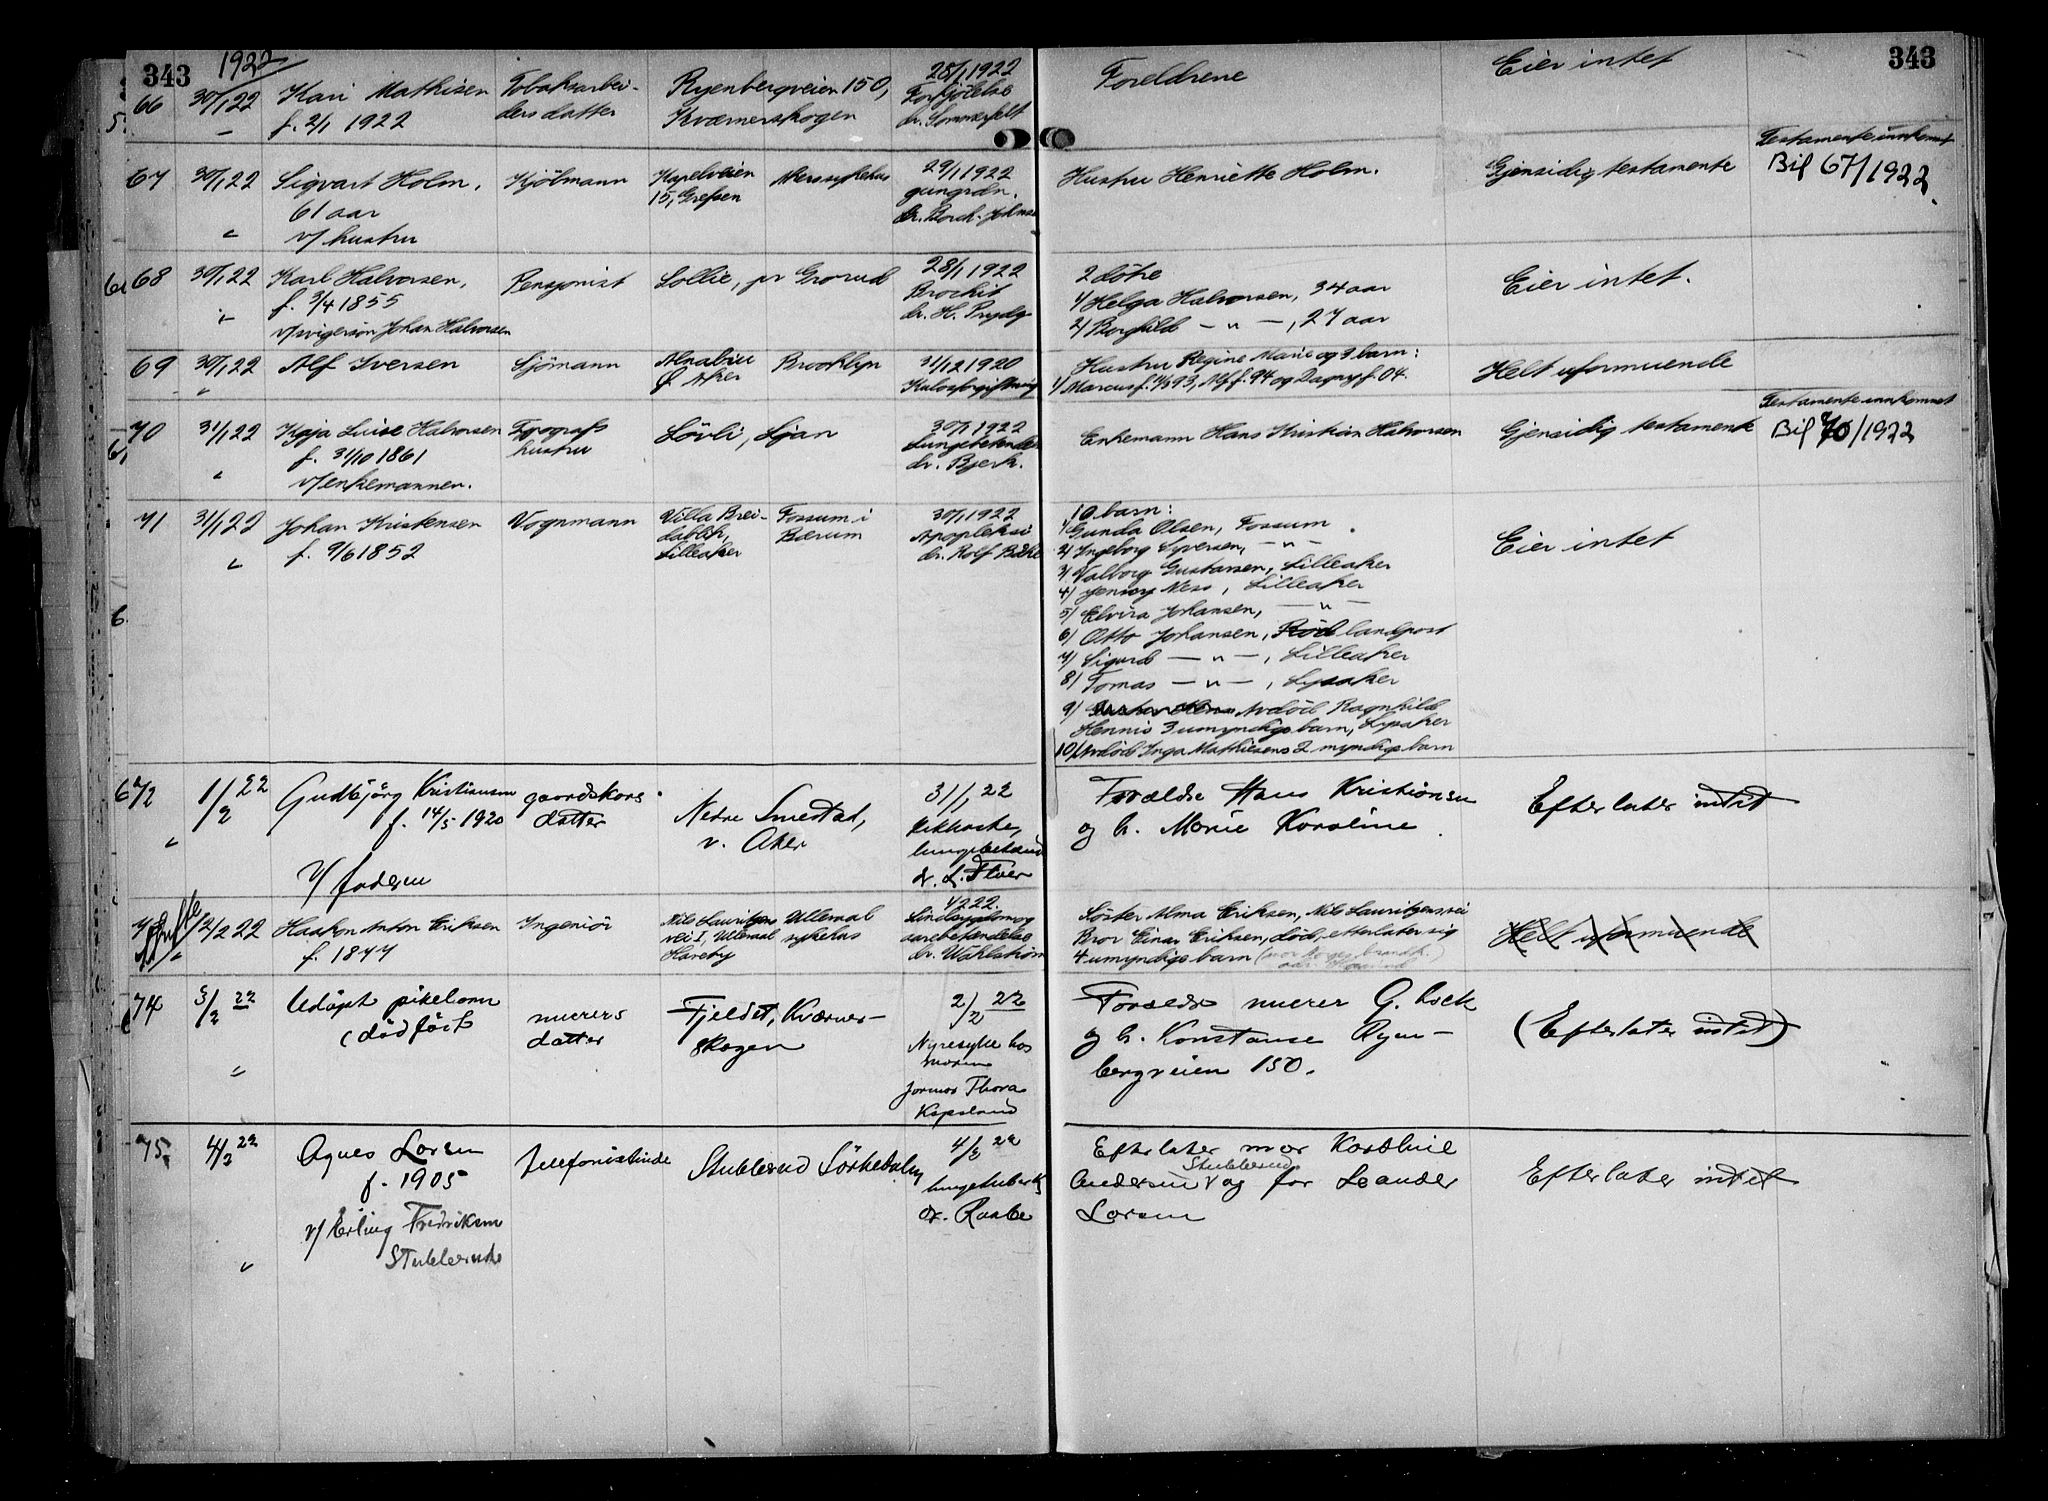 343
1922
343
66
30/1 22
Kari Mathisen
f. 2/1 1922
Tobakarbei-
ders datter
Ryenbergveien 150,
Kværnerskogen
28/1 1922
Forkjölelse
dr. Sommerfelt
Foreldrene
Eier intet
67
30/1 22
Sigvart Holm,
61 aar
v/ hustru
Kjöbmann
Kapelveien
15, Grefsen
Akers sykehus
29/1 1922
gungræn.
dr. Borch-Johnsen
Hustru Henriette Holm.
Gjensidig testamente
Testamente innkomet
Bil 67/1922
68
30/1 22
Karl Halvorsen,
f. 3/4 1855
v/svigersön Johan Halvorsen
Pensjonist
Sollie, pr Grorud
28/1 1922
Brockit
dr. H. Prydz
2 dötre
1/ Helga Halvorsen, 34 aar
2/ Borghild — " —, 27 aar
Eier intet.
69
30/1 22
Alf Iversen
Sjömann
Alnabru
f. Aker
Brooklyn
31/12 1920
Kulosforgiftning
Hustru Regine Marie og 3 barn:
1/ Marcus f. 1/3 93, Alf f. 94 og Dagny f. 04.
Helt uformuende
70
31/1 22
Kaja Luise Halvorsen
f. 31/10 1861
v/enkemannen.
Typografs
hustru
Lövli, Ljan
30/1 1922
Lungebetendelse
dr. Bjerk.
Enkemann Hans Kristian Halvorsen
Gjensidig testamente
Testamente innkommet
Bil 70/1922
71
31/1 22
Johan Kristensen
f. 9/6 1852
Vognmann
Villa Brei-
dablik,
Lilleaker
Fossum i
Bærum
30/1 1922
Apopleksi
dr. Rolf
10 barn:
1/ Gunda Olsen, Fossum
2/ Ingeborg Syversen, — " —
3/ Valborg Gustavsen, Lilleaker
4/ Jenny Ness, Lilleaker
5/ Elvira Johansen, — " —
6/ Otto Johansen, landpost
7/ Sigurd — " —, Lilleaker
8/ Tomas — " —, Lysaker
9/ Avdöd Ragnhild
Hennis 3 umyndige barn, Lysaker
10/ Avdöd Inga Mathiesens 2 myndige barn
Eier intet
72
1/2 22
Gudbjörg Kristiansen
f. 14/5 1920
v/ faderen
gaardskars
datter
Nedre Smestad,
v. Aker
31/1 22
Kikhoste,
lungebetænd
dr. L.
Forældre Hans Kristiansen
og h. Marie Karoline
Efterlater intet
2/2 22
Haakon Anton Eriksen
f. 1877
Ingeniör
Nils Lauritzens
vei I, Ulleval
Haveby
Ullevaal
sykehus
1/2 22.
Lindsygdom og
aarebetendelse
dr. Wahlström
Söster Alma Eriksen, Nils Lauritzens vei
Bror Einar Eriksen, död, etterlater sig
4 umyndige barn
Helt uformuende
74
3/2 22
Udöpt pikebarn
(dödfödt
murers
datter
Fjeldet, Kværner-
skogen
2/2 22
Nyresyke hos
moren
jormor Thora
Kapsland
Forældre murer G. Lock
og h. Konstanse Ryen-
bergveien 150.
(Efterlater intet)
75
4/2 22
Agnes Larsen
f. 1905
v/ Erling Fredriksen
Stubberud
telefonistinde
Stubberud Sörkedalen
4/2 22
lungetuberk
dr. Raabe
Efterlater mor
Andersen Stubberud og far Leander
Larsen
Efterlater intet